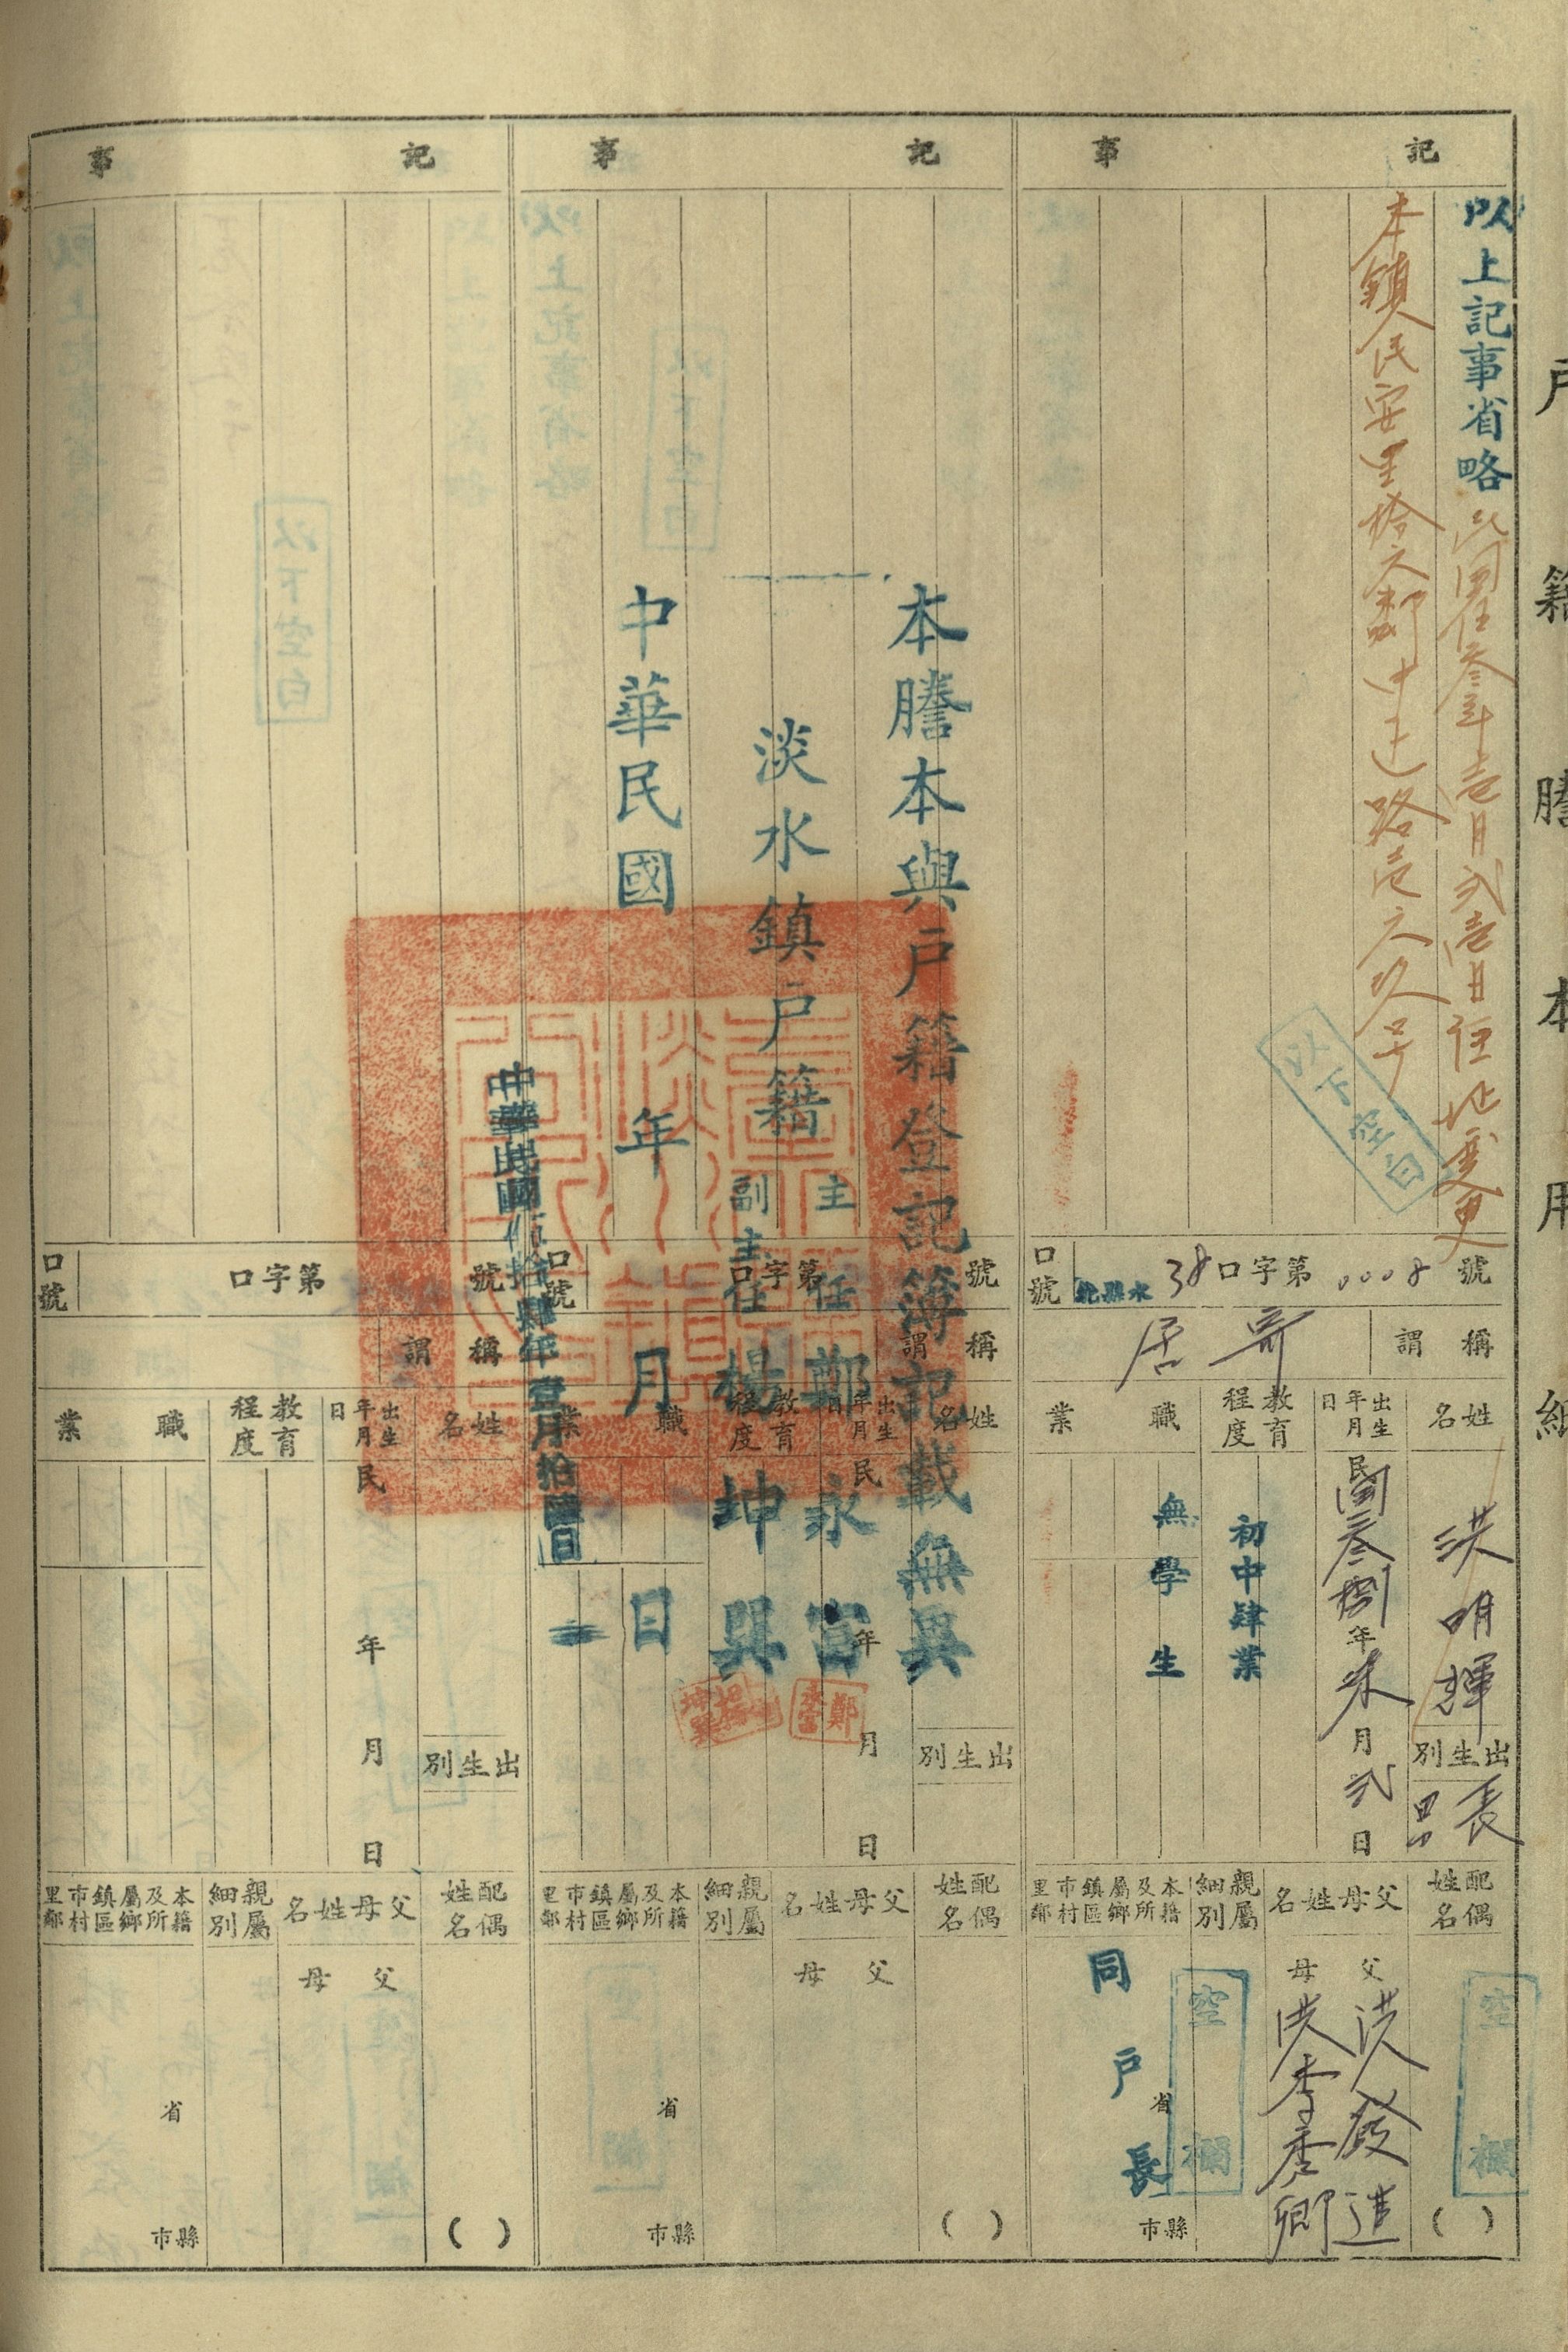 戶籍謄本用
記事
以上記事省略 民國伍叁年壹月貳壹日住址變更
本鎮民安里拾六鄰中正路壱六久号
以下空白
口號 水縣北 38口字第0008號
稱謂
寄居
姓名
洪明輝
出生別
長男
出生年月日
民國叁捌年米月貳日
教育程度
初中肄業
職業
無
學生
配偶姓名
空欄
( )
父母姓名
父 洪發進
母 洪李秀卿
親屬細別
空欄
本籍及所屬鄉鎮區市村里鄰
同戶長
省
縣市
記事
本謄本與戶籍登記簿記載無異
淡水鎮戶籍
主任 鄭永富
副主任 楊坤巽
鄭永富
楊坤巽
中華民國 年 月 日
中華民國伍拾肆年壹月拾 日
口號 口字第 號
稱謂
姓名
出生別
出生年月日
民 年 月 日
教育程度
職業
配偶姓名
( )
父母姓名
父
母
親屬細別
本籍及所屬鄉鎮區市村里鄰
省
縣市
記事
口號 口字第 號
稱謂
姓名
出生別
出生年月日
民 年 月 日
教育程度
職業
配偶姓名
( )
父母姓名
父
母
親屬細別
本籍及所屬鄉鎮區市村里鄰
省
縣市